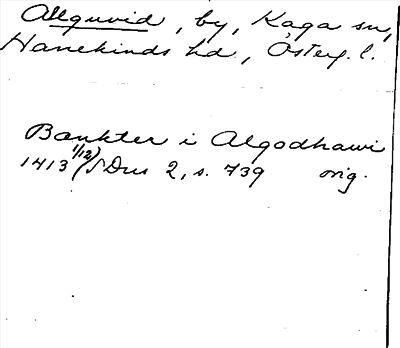 Allguvid, by, Kaga sn,
Hanekinds hd, Österg. l.
Bankter i Algodhawi
1413 1/12) SDns 2, s. 739 orig.